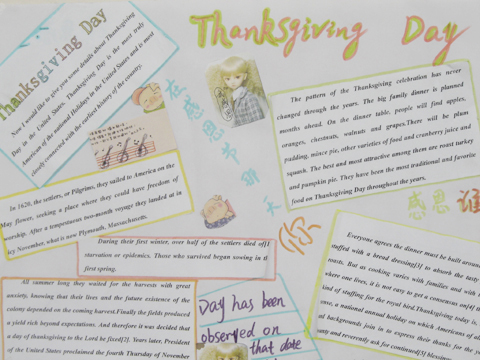 Thanksgiving Day
Thanksgiving Day
Now I would like to give you some details about Thanksgiving
Day in the United States. Thanksgiving Day is the most truly
American of the national Holidays in the United States and is most
closely connected with the earliest history of the country.
In 1620, the settlers, or Pilgrims, they sailed to America on the
May flower, seeking a place where they could have freedom of
worship. After a tempestuous two-month voyage they landed at in
icy November, what is now Plymouth, Massachusetts.
During their first winter, over half of the settlers died of[1
starvation or epidemics. Those who survived began sowing in t
first spring.
All summer long they waited for the harvests with great
anxiety, knowing that their lives and the future existence of the
colony depended on the coming harvest.Finally the fields produced
a yield rich beyond expectations. And therefore it was decided that
a day of thanksgiving to the Lord be fixed[2]. Years later, President
of the United States proclaimed the fourth Thursday of November
在感恩节那天
The pattern of the Thanksgiving celebration has never
changed through the years. The big family dinner is planned
months ahead. On the dinner table, people will find apples,
oranges, chestnuts, walnuts and grapes.There will be plum
pudding, mince pie, other varieties of food and cranberry juice and
squash. The best and most attractive among them are roast turkey
and pumpkin pie. They have been the most traditional and favorite
food on Thanksgiving Day throughout the years.
你
感恩谁
Day has been
observed on
that date
Everyone agrees the dinner must be built around
stuffed with a bread dressing[3] to absorb the tasty
roasts. But as cooking varies with families and with t
where one lives, it is not easy to get a consensus on[4
kind of stuffing for the royal bird.Thanksgiving today is,
case, a national annual holiday on which Americans of al
and backgrounds join in to express their thanks for the y
and reverently ask for continued[5]